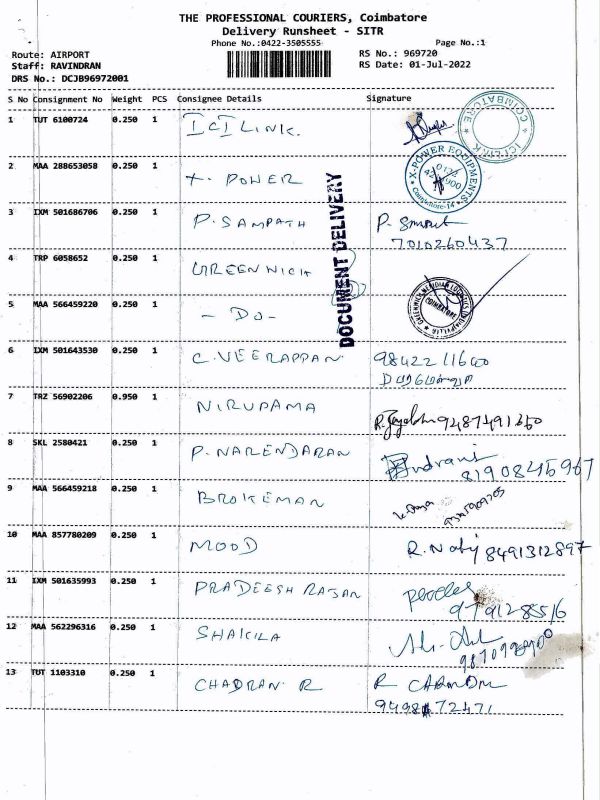 THE PROFESSIONAL COURIERS, Coimbatore
Delivery Runsheet - SITR
Phone No.:0422-3505555 Page No.:1
Route: AIRPORT RS No.: 969720
Staff: RAVINDRAN RS Date: 01-Jul-2022
DRS No.: DCJB96972001
S No Consignment No Weight PCS Consignee Details Signature
1 TUT 6100724 0.250 1 ICI LINK.
COIMBATORE ICI LINK
2 MAA 288653058 0.250 1 X. POWER
X-POWER EQUIPMENTS
Coimbatore-14
DOCUMENT DELIVERY
3 IXM 501686706 0.250 1 P. SAMPATH P.
7010260437
4 TRP 6058652 0.250 1 GREENWICH
5 MAA 566459220 0.250 1 - DO -
COIMBATORE
6 IXM 501643530 0.250 1 C. VEERAPPAN 9842211640
7 TRZ 56902206 0.950 1 NIRUPAMA R. 9487491350
8 SKL 2580421 0.250 1 P. NARENDARAN
8190845967
9 MAA 566459218 0.250 1 BROKEMAN
10 MAA 857780209 0.250 1 MOOD R. 8491312897
11 IXM 501635993 0.250 1 PRADEESH RAJAN
12 MAA 562296316 0.250 1 SHAKILA
13 TUT 1103310 0.250 1 CHADRAN R R